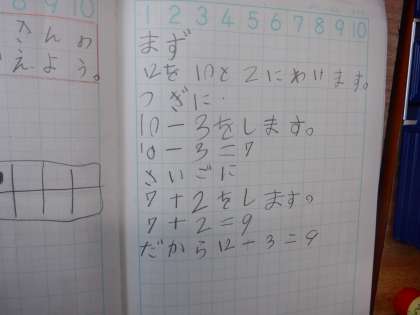 8 9 10
さんの
考えよう。
1 2 3 4 5 6 7 8 9 10
まず
12を10と2にわけます。
つぎに、
10-3をします。
10-3=7
さいごに
7+2をします。
7+2=9
だから12-3=9